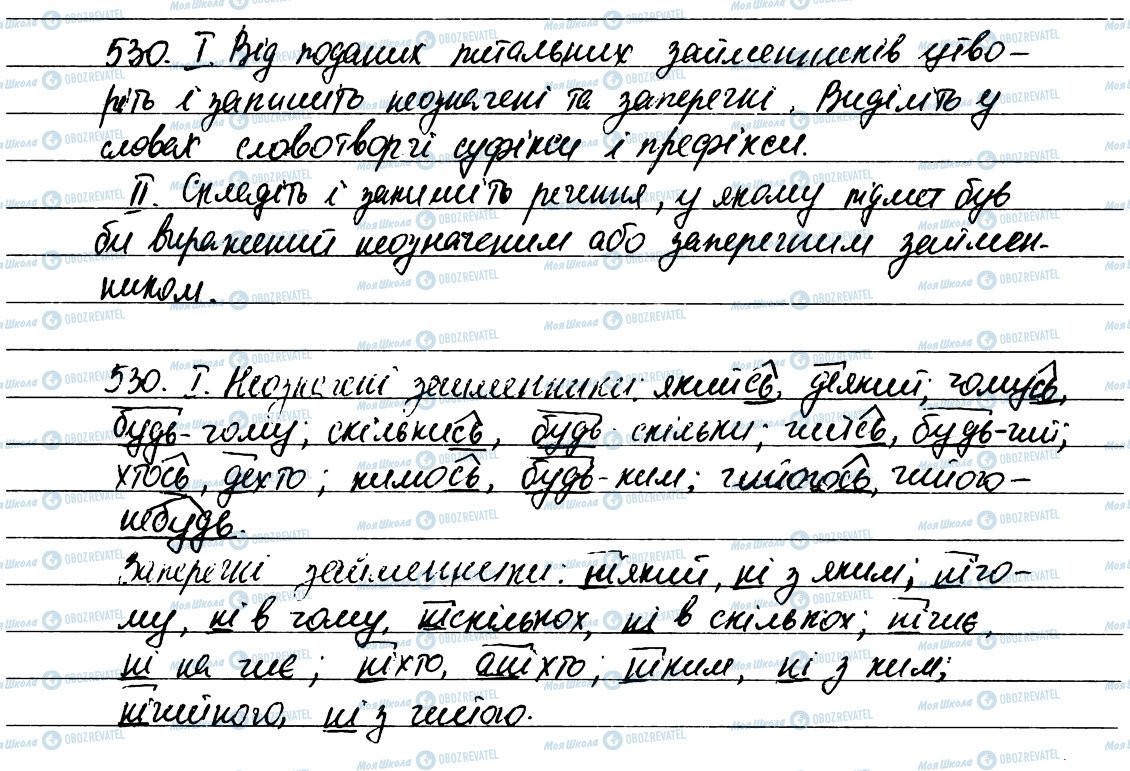 530. І. Від поданих питальних займенників утво-
ріть і запишіть неозначені та заперечні. Виділіть у
словах словотворчі суфікси і префікси.
ІІ. Складіть і запишіть речення, у якому підмет був
би виражений неозначеним або заперечним займен-
ником.
530. І. Неозначені займенники: якийсь, деякий; чомусь,
будь-чому; скількись, будь-скільки; чиїсь, будь-чиї;
хтось, дехто; кимось, будь-ким; чийогось, чийого-
небудь.
Заперечні займенники: ніякий, ні з яким; нічо-
му, ні в чому, ніскількох, ні в скількох; нічиє,
ні на чиє; ніхто, аніхто; ніким, ні з ким;
нічийного, ні з чийого.